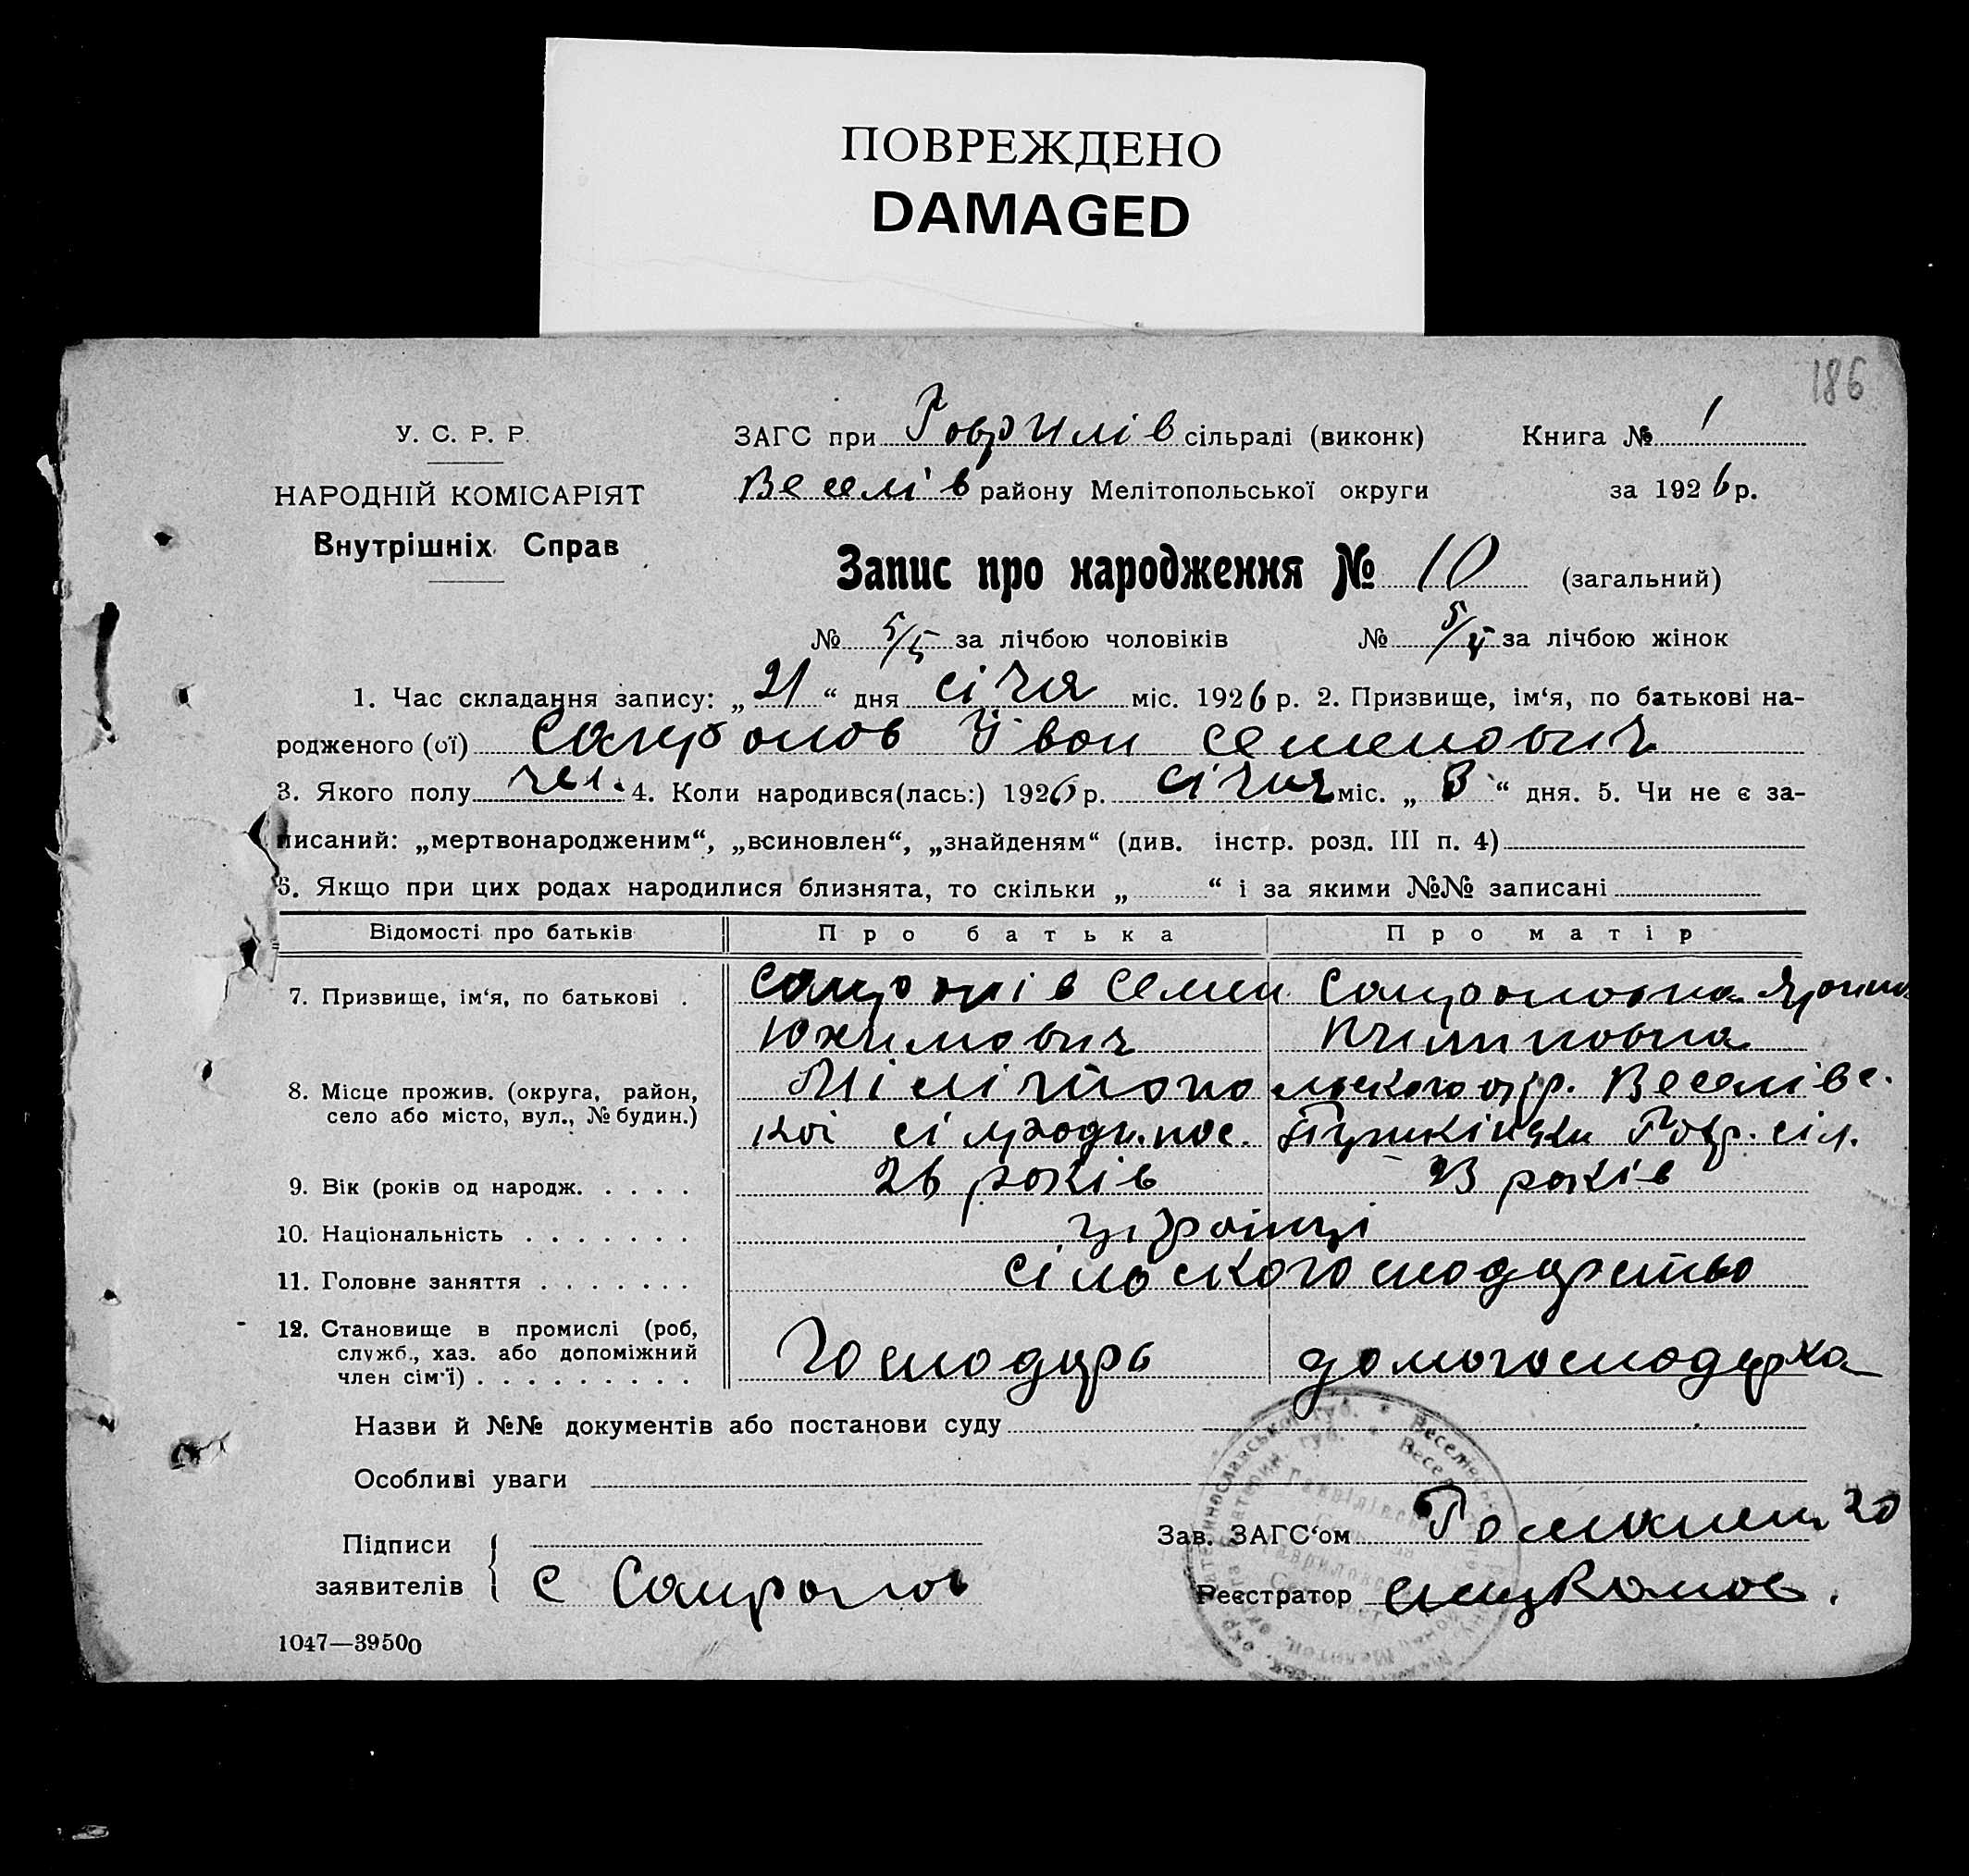 ПОВРЕЖДЕНО
DAMAGED
186
У. С. Р. Р.
НАРОДНІЙ КОМІСАРІЯТ
Внутрішніх Справ
ЗАГС при Гаврилів сільраді (виконк)
Книга № 1
Веселів району Мелітопольської округи
за 1926 р.
Запис про народження № 10 (загальний)
№ 5/5 за лічбою чоловіків № 5/ за лічбою жінок
1. Час складання запису: „ 21 “ дня січня міс. 1926 р. 2. Призвище, ім‘я, по батькові на-
родженого (ої) Сапронов Іван Семенович
3. Якого полу чел. 4. Коли народився(лась:) 1926 р. січня міс. „ 8 “ дня. 5. Чи не є за-
писаний: „мертвонародженим“, „всиновлен“, „знайденям“ (див. інстр. розд. III п. 4)
6. Якщо при цих родах народилися близнята, то скільки „ “ і за якими №№ записані
Відомості про батьків Про батька Про матір
7. Призвище, ім‘я, по батькові . Семен
Юхимович
8. Місце прожив. (округа, район,
село або місто, вул., № будин.)
Мілітопольского окр. Веселівс.
кої пос. Гавр. сіл.
9. Вік (років од народж. . . . . 26 років 23 років
10. Національність . . . . . . . українці
11. Головне заняття . . . . . . . сільськогосподарство
12. Становище в промислі (роб,
служб., хаз. або допоміжний
член сім‘ї) . . . . . . . . . Господарь домогосподарка
Назви й №№ документів або постанови суду
Особливі уваги
Підписи
заявителів С Сапронов
Зав. ЗАГС‘ом
Реєстратор
1047—39500